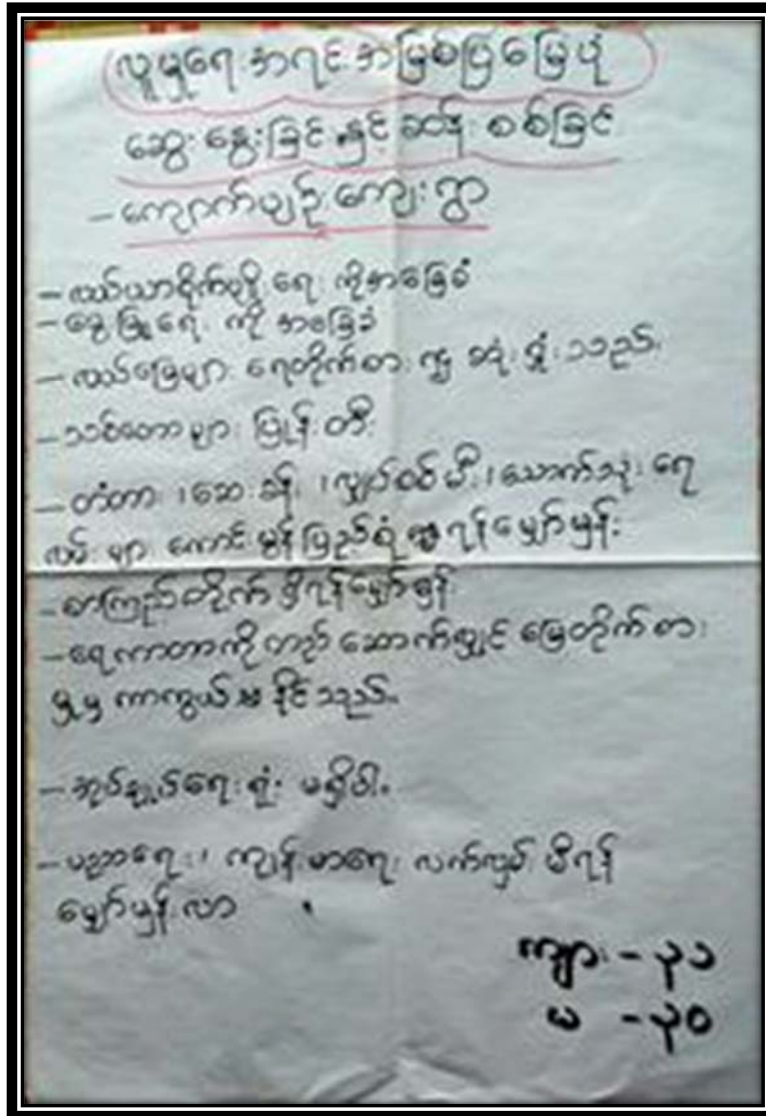 လူမှုရေးအရင်းအမြစ်ပြမြေပုံ
ဆွေးနွေးခြင်းနှင့် ဆန်းစစ်ခြင်း
– ကျောက်မျဉ်းကျေးရွာ
– လယ်ယာစိုက်ပျိုးရေးကိုအခြေခံ
– မွေးမြူရေးကို အခြေခံ
– လယ်မြေများ ရေတိုက်စား၍ ဆုံးရှုံးသည်။
– သစ်တောများ ပြုန်းတီး
– တံတား၊ ဆေးခန်း၊ လျှပ်စစ်မီး၊ သောက်သုံးရေ
လမ်းများ ကောင်းမွန်ပြည့်စုံရန်မျှော်မှန်း
– စာကြည့်တိုက်ရှိရန်မျှော်မှန်း
– ရေကာတာကိုတည်ဆောက်လျှင် မြေတိုက်စား
မှုမှ ကာကွယ်နိုင်သည်။
– အုပ်ချုပ်ရေးရုံး မရှိပါ။
– ပညာရေး၊ ကျန်းမာရေး လက်လှမ်းမီရန်
မျှော်မှန်းလာ
ကျား – ၃၁
မ – ၃၀